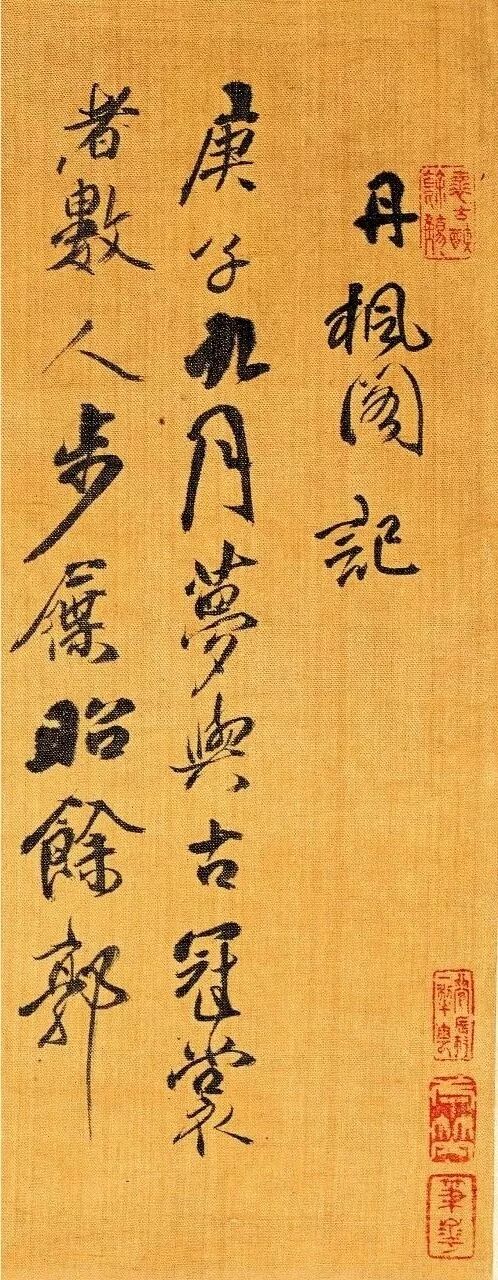 丹楓閣記
庚子九月夢與古冠裳
者數人步屧昭餘郭